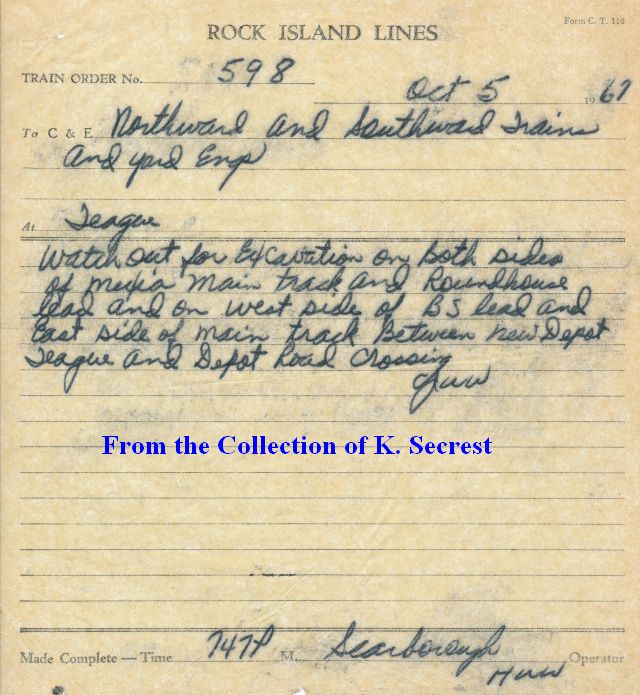 Form C. T. 110
ROCK ISLAND LINES
TRAIN ORDER No. 598
Oct 5 1967
To C & E Northward and Southward Trains
And yard Engs
At Teague
Watch out for Excavation on Both sides
of Mexia Main track and Roundhouse
lead and on west side of BS lead and
East side of Main track Between new Depot
Teague and Depot Road Crossing
From the Collection of K. Secrest
Made Complete — Time 747P M. Scarborough Operator